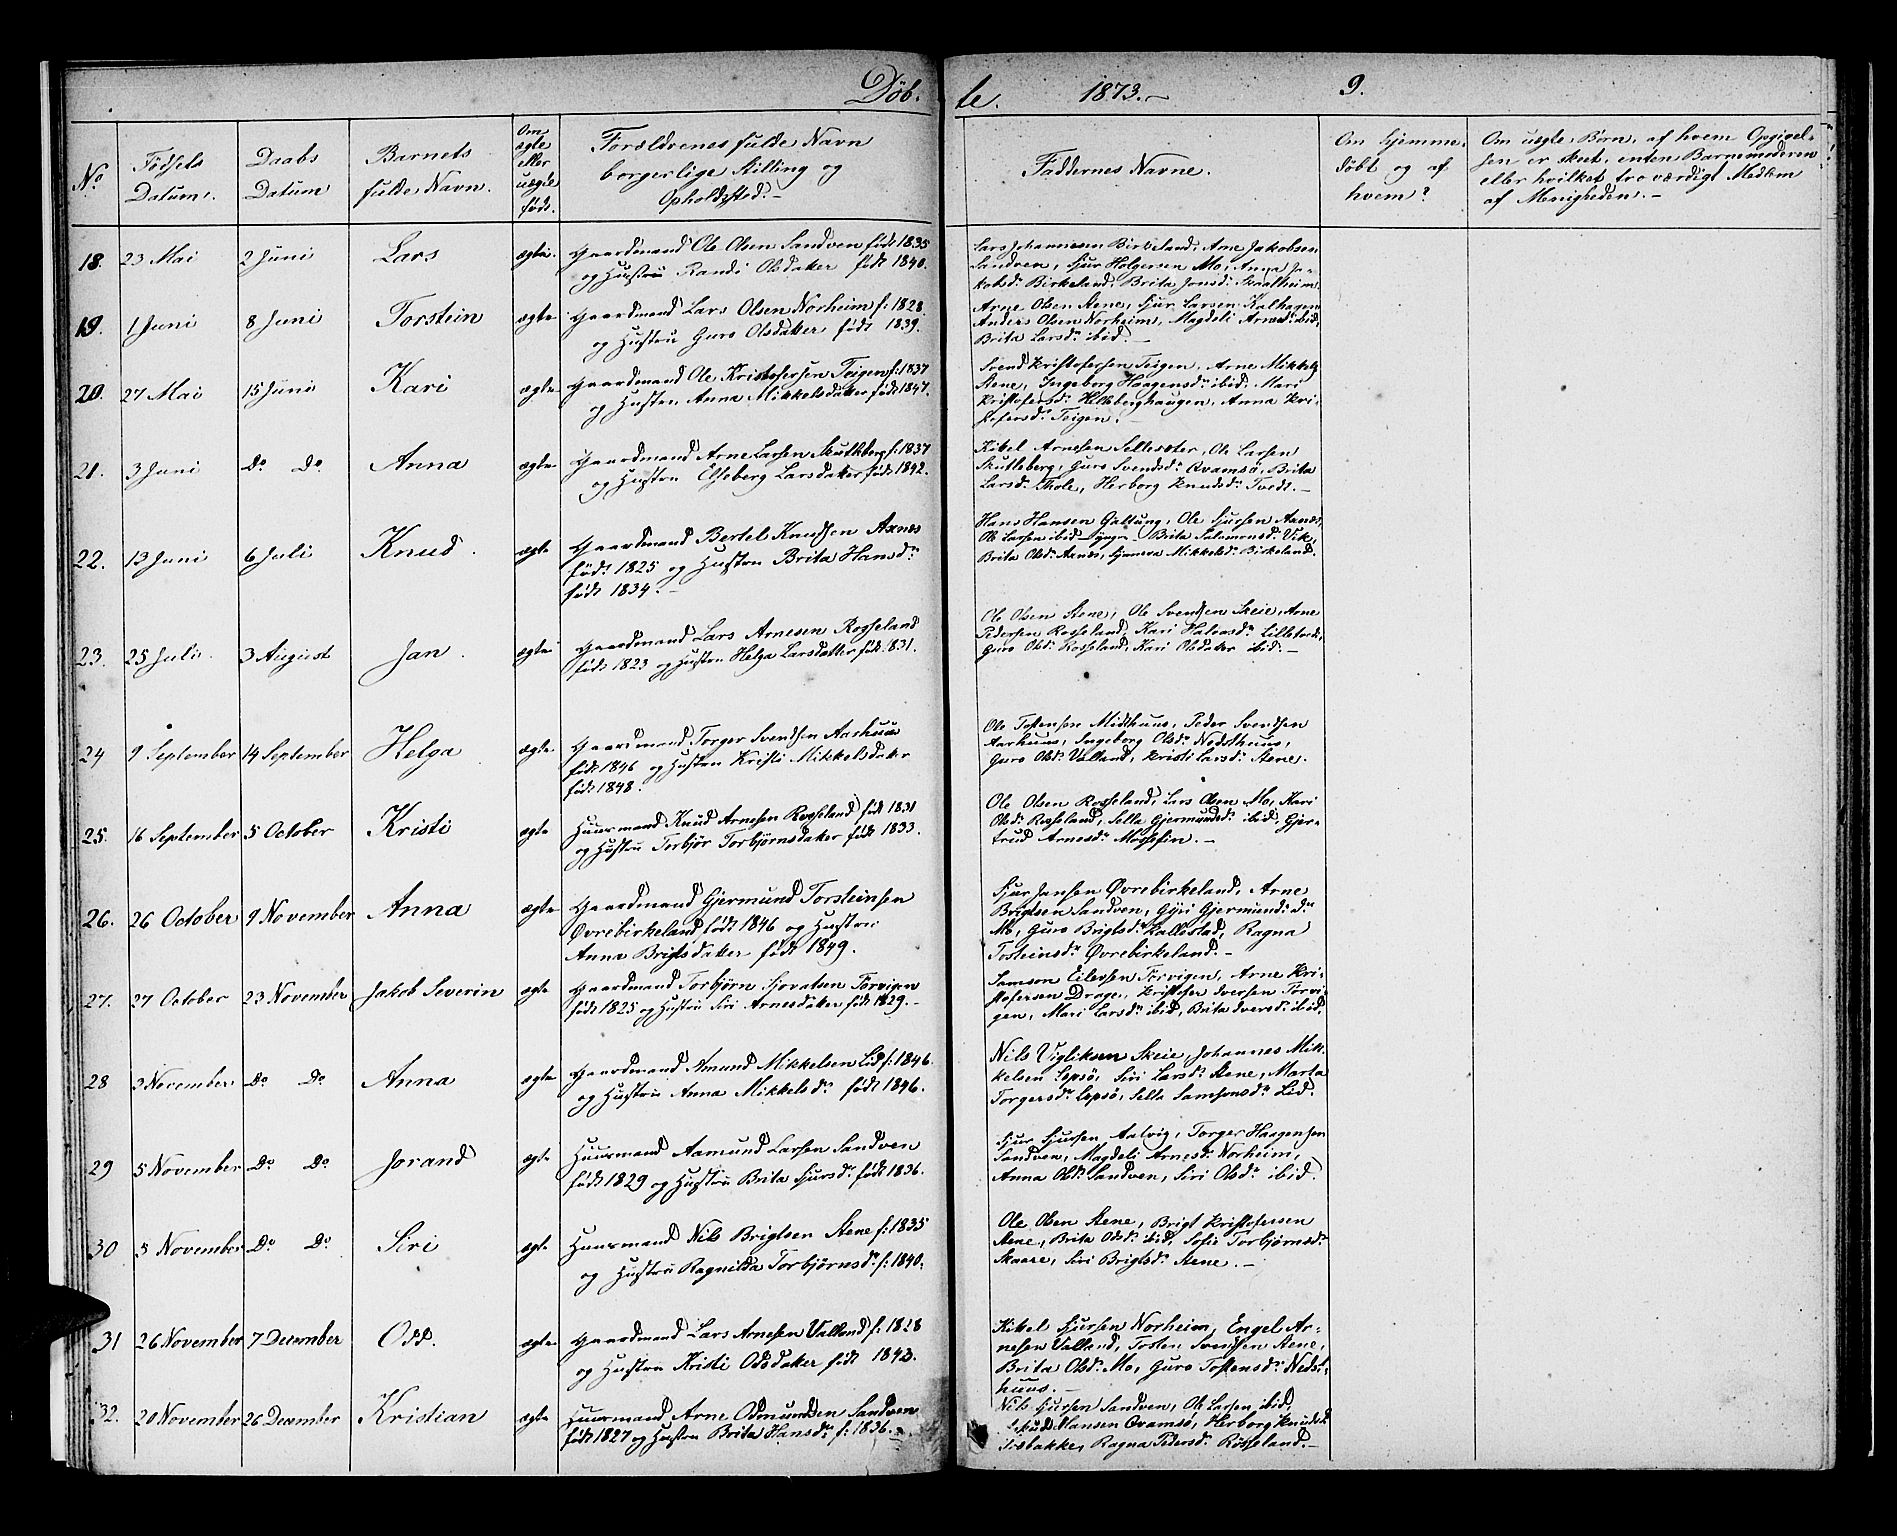 Döb. te. 1873.— 9.
No
Fødsels Datum.
Daabs Datum
Barnets fulde Navn.
Om ægte eller uægte født.
Forældrenes fulde Navn borgerlige Stilling og Opholdssted.—
Faddernes Navne.
Om hjemmedøbt og af hvem?
Om uægte Børn, af hvem Opgivelsen er skeet, enten Barnemoderen eller hvilket troværdigt Medlem af Menigheden.—
18. 23 Mai 2 Juni Lars ægte. Gaardmand Ole Olsen Sandven født 1835
og Hustru Randi Olsdatter født 1840.
Lars Johannesen Birkeland, Arne Jakobsen
Sandven, Sjur Holgersen Mo, Anna Ja-
kobsd: Birkeland, Brita Jonsd: Skaalheim.
19. 1 Juni 8 Juni Torstein ægte Gaardmand Lars Olsen Norheim f: 1828.
og Hustru Guro Olsdatter født 1839.
Arne Olsen Stene, Sjur Larsen Kalhagen
Anders Olsen Norheim, Magdeli Arnesd: ibid,
Brita Larsdr ibid.—
20. 27 Mai 15 Juni Kari ægte Gaardmand Ole Kristofersen Teigen f: 1837
og Hustru Anna Mikkelsdatter født 1847.
Svend Kristofersen Teigen, Arne Mikkels
Stene, Ingeborg Haagensdr ibid. Mari
Kristofersdr Hilleberghaugen, Anna Kri-
stofersdr Teigen.
21. 3 Juni Do Do Anna ægte Gaardmand Arne Larsen Skutleberg f: 1837
og Hustru Elseberg Larsdatter født 1842.
Kitel Arnesen Selleseter, Ole Larsen
Skutleberg, Guro Svendsdr Qvamsø, Brita
Larsd: Thole, Herborg Knudsdr Tvedt.—
22. 13 Juni 6 Juli Knud. ægte Gaardmand Bertel Knudsen Axnes
født 1825 og Hustru Brita Hansdr
født 1834.—
Hans Hansen Galtung, Ole Sjursen Axnes,
Ole Larsen ibid yngre, Brita Salamonsdr Vik,
Brita Olsdr Axnes, Mikkelsdr Birkeland.
23. 25 Juli. 3 August Jan. ægte Gaardmand Lars Arnesen Rosseland
født 1823 og Hustru Helga Larsdatter født 1831.
Ole Olsen Stene, Ole Svendsen Skeie, Arne
Pedersen Rosseland, Kari
Guro Olsdr Rosseland, Kari Olsdatter ibid.—
24 9 September 14 September Helga ægte. Gaardmand Torger Svendsen Aarhuus
født 1846 og Hustru Kristi Mikkelsdatter
født 1848.
Ole Tostensen Midthuus, Peder Svendsen
Aarhuus, Ingeborg Olsdr Nedsthuus,
Guro Olsdr Valland, Kristi Larsdr Stene.
25. 16 September 5 October Kristi ægte Huusmand Knud Arnesen Rosseland født 1831
og Hustru Torbjør Torbjørnsdatter født 1833.
Ole Olsen Rosseland, Lars Olsen Mo, Kari
Olsdr Rosseland, Sella Gjermundsdr ibid, Gjer-
trud Arnesdr —
26. 26 October 9 November Anna ægte Gaardmand Gjermund Torsteinsen
Øvrebirkeland født 1846 og Hustru
Anna Brigtsdatter født 1849.
Sjur Jansen Øvrebirkeland, Arne
Brigtsen Sandven, Gyri Gjermundsdr
Mo, Guro Brigtsdr Kallestad, Ragna
Tosteinsdr Øvrebirkeland.—
27. 27 October 23 November Jakob Severin ægte Gaardmand Torbjörn Sjovatsen Torvigen
født 1825 og Hustru Siri Arnesdatter født 1829.—
Samson Eilevsen Torvigen, Arne Kri-
stofersen Drage, Kristofer Iversen Torvi-
gen, Mari Larsdr ibid, Brita Iversdr ibid.
28 3 November. Do Do Anna ægte Gaardmand Amund Mikkelsen Lid f: 1846.
og Hustru Anna Mikkelsdr født 1846.
Nils Vigliksen Skeie, Johannes Mik-
kelsen Lepsö, Siri Larsdr Stene, Marta
Torgersdr Lepsö, Sella Samsonsdr Lid.
29 5 November Do Do Jorand ægte Huusmand Aamund Larsen Sandven
født 1829 og Hustru Brita Sjursdr født 1836.
Sjur Sjursen Aalvig, Torger Haagensen
Sandven, Magdeli Arnesdr Norheim,
Anna Olsdr Sandven, Siri Olsdr ibid.
30 5 November Do Do Siri ægte Huusmand Nils Brigtsen Stene f: 1835
og Hustru Ragnilda Torbjørnsdr f: 1840.
Ole Olsen Stene, Brigt Kristofersen
Stene, Brita Olsdr ibid, Sofie Torbjørnsdr
Skaare, Siri Brigtsdr Stene.—
31 26 November 7 December Odd. ægte Gaardmand Lars Arnesen Valland f: 1828
og Hustru Kristi Odsdatter født 1843.
Kitel Sjursen Norheim, Engel Ar-
nesen Valland, Tosten Svendsen Stene,
Brita Olsdr Mo, Guro Tostensdr Nedst-
huus.—
32. 20 November 26 December Kristian ægte Huusmand Arne Odmundsen Sandven
født 1827 og Hustru Brita Hansdr f: 1836.—
Nils Sjursen Sandven, Ole Larsen ibid,
Hansen Qvamsø, Herborg Knudsdr
Ragna Pedersdr Rosseland.—